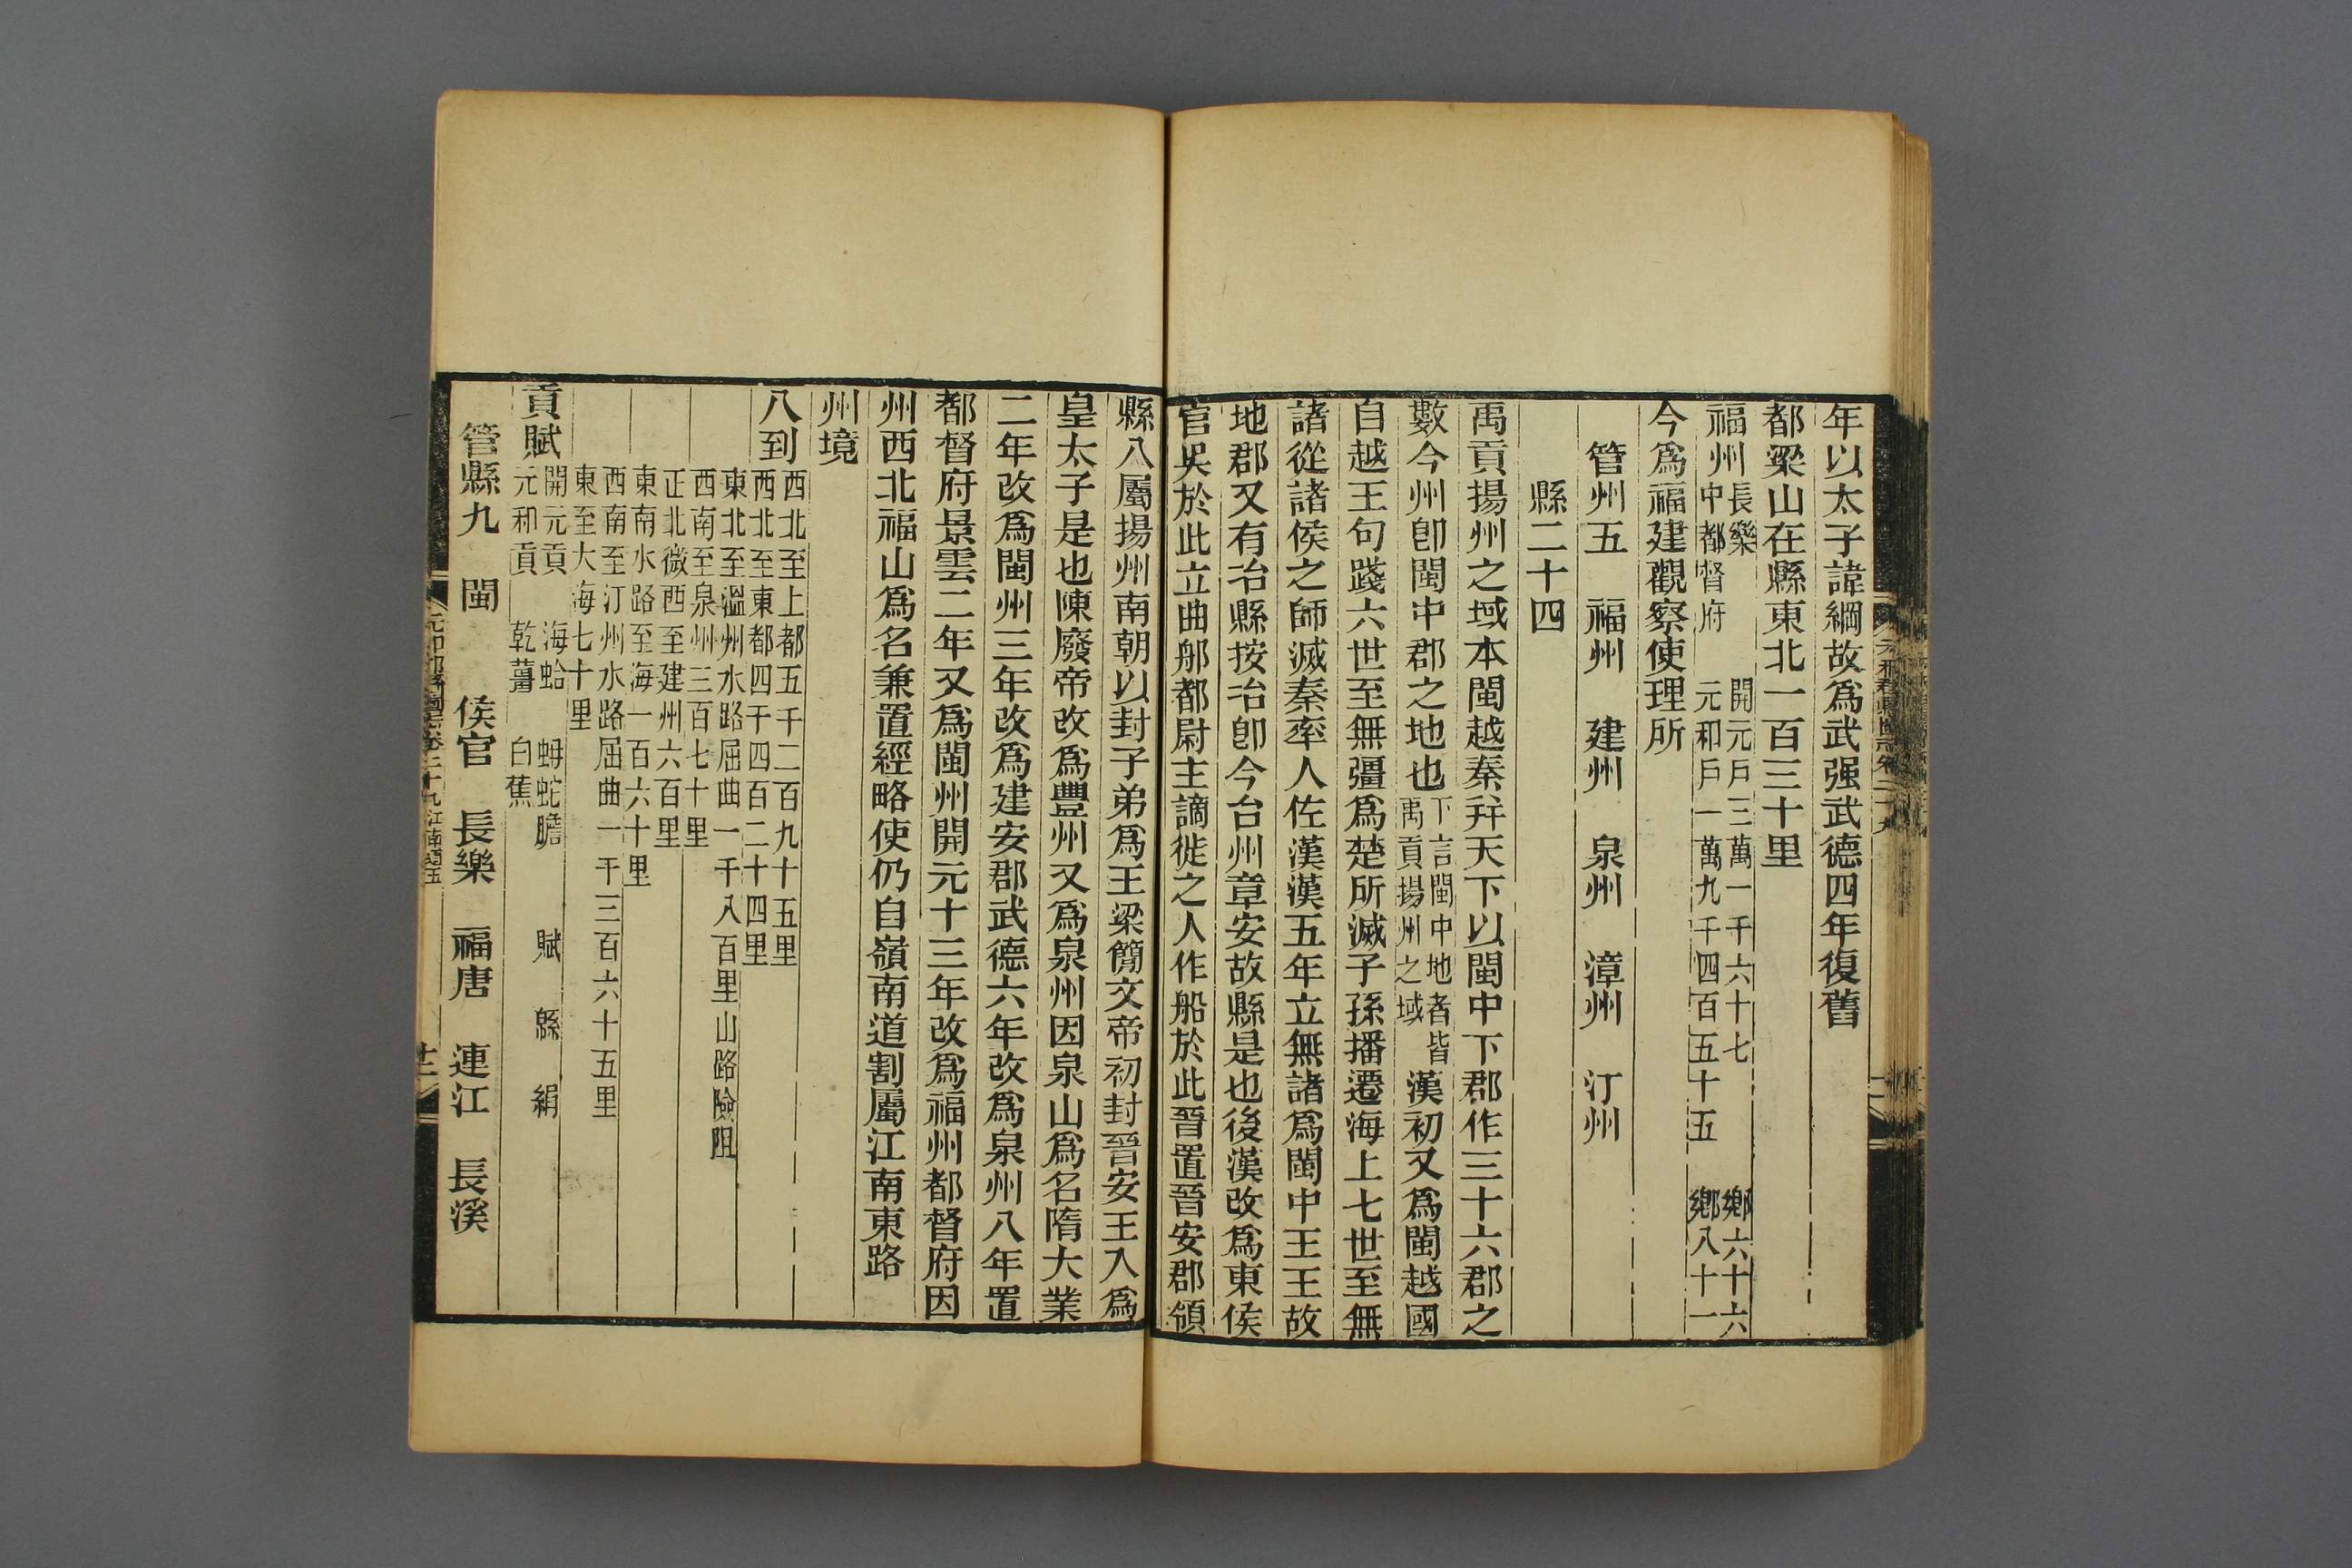 年以太子諱綱故爲武强武德四年復舊
都梁山在縣東北一百三十里
福州長樂中都督府 開元戶三萬一千六十七 鄉六十六 元和戶一萬九千四百五十五 鄉八十一
今爲福建觀察使理所
管州五 福州 建州 泉州 漳州 汀州
縣二十四
禹貢揚州之域本閩越秦幷天下以閩中下郡作三十六郡之
數今州卽閩中郡之地也下言閩中地者皆禹貢揚州之域漢初又爲閩越國
自越王句踐六世至無彊爲楚所滅子孫播遷海上七世至無
諸從諸侯之師滅秦率人佐漢漢五年立無諸爲閩中王王故
地郡又有冶縣按冶卽今台州章安故縣是也後漢改爲東侯
官吳於此立曲郍都尉主謫徙之人作船於此晉置晉安郡領
縣八屬揚州南朝以封子弟爲王梁簡文帝初封晉安王入爲
皇太子是也陳廢帝改爲豐州又爲泉州因泉山爲名隋大業
二年改爲閩州三年改爲建安郡武德六年改爲泉州八年置
都督府景雲二年又爲閩州開元十三年改爲福州都督府因
州西北福山爲名兼置經略使仍自嶺南道割屬江南東路
州境
八到 西北至上都五千二百九十五里
西北至東都四千四百二十四里
東北至溫州水路屈曲一千八百里山路險阻
西南至泉州三百七十里
正北微西至建州六百里
東南水路至海一百六十里
西南至汀州水路屈曲一千三百六十五里
東至大海七十里
貢賦 開元貢 海蛤 蚺蛇膽 賦 緜 絹
元和貢 乾薑 白蕉
管縣九 閩 侯官 長樂 福唐 連江 長溪
元和郡縣圖志卷二十九江南道五
十二